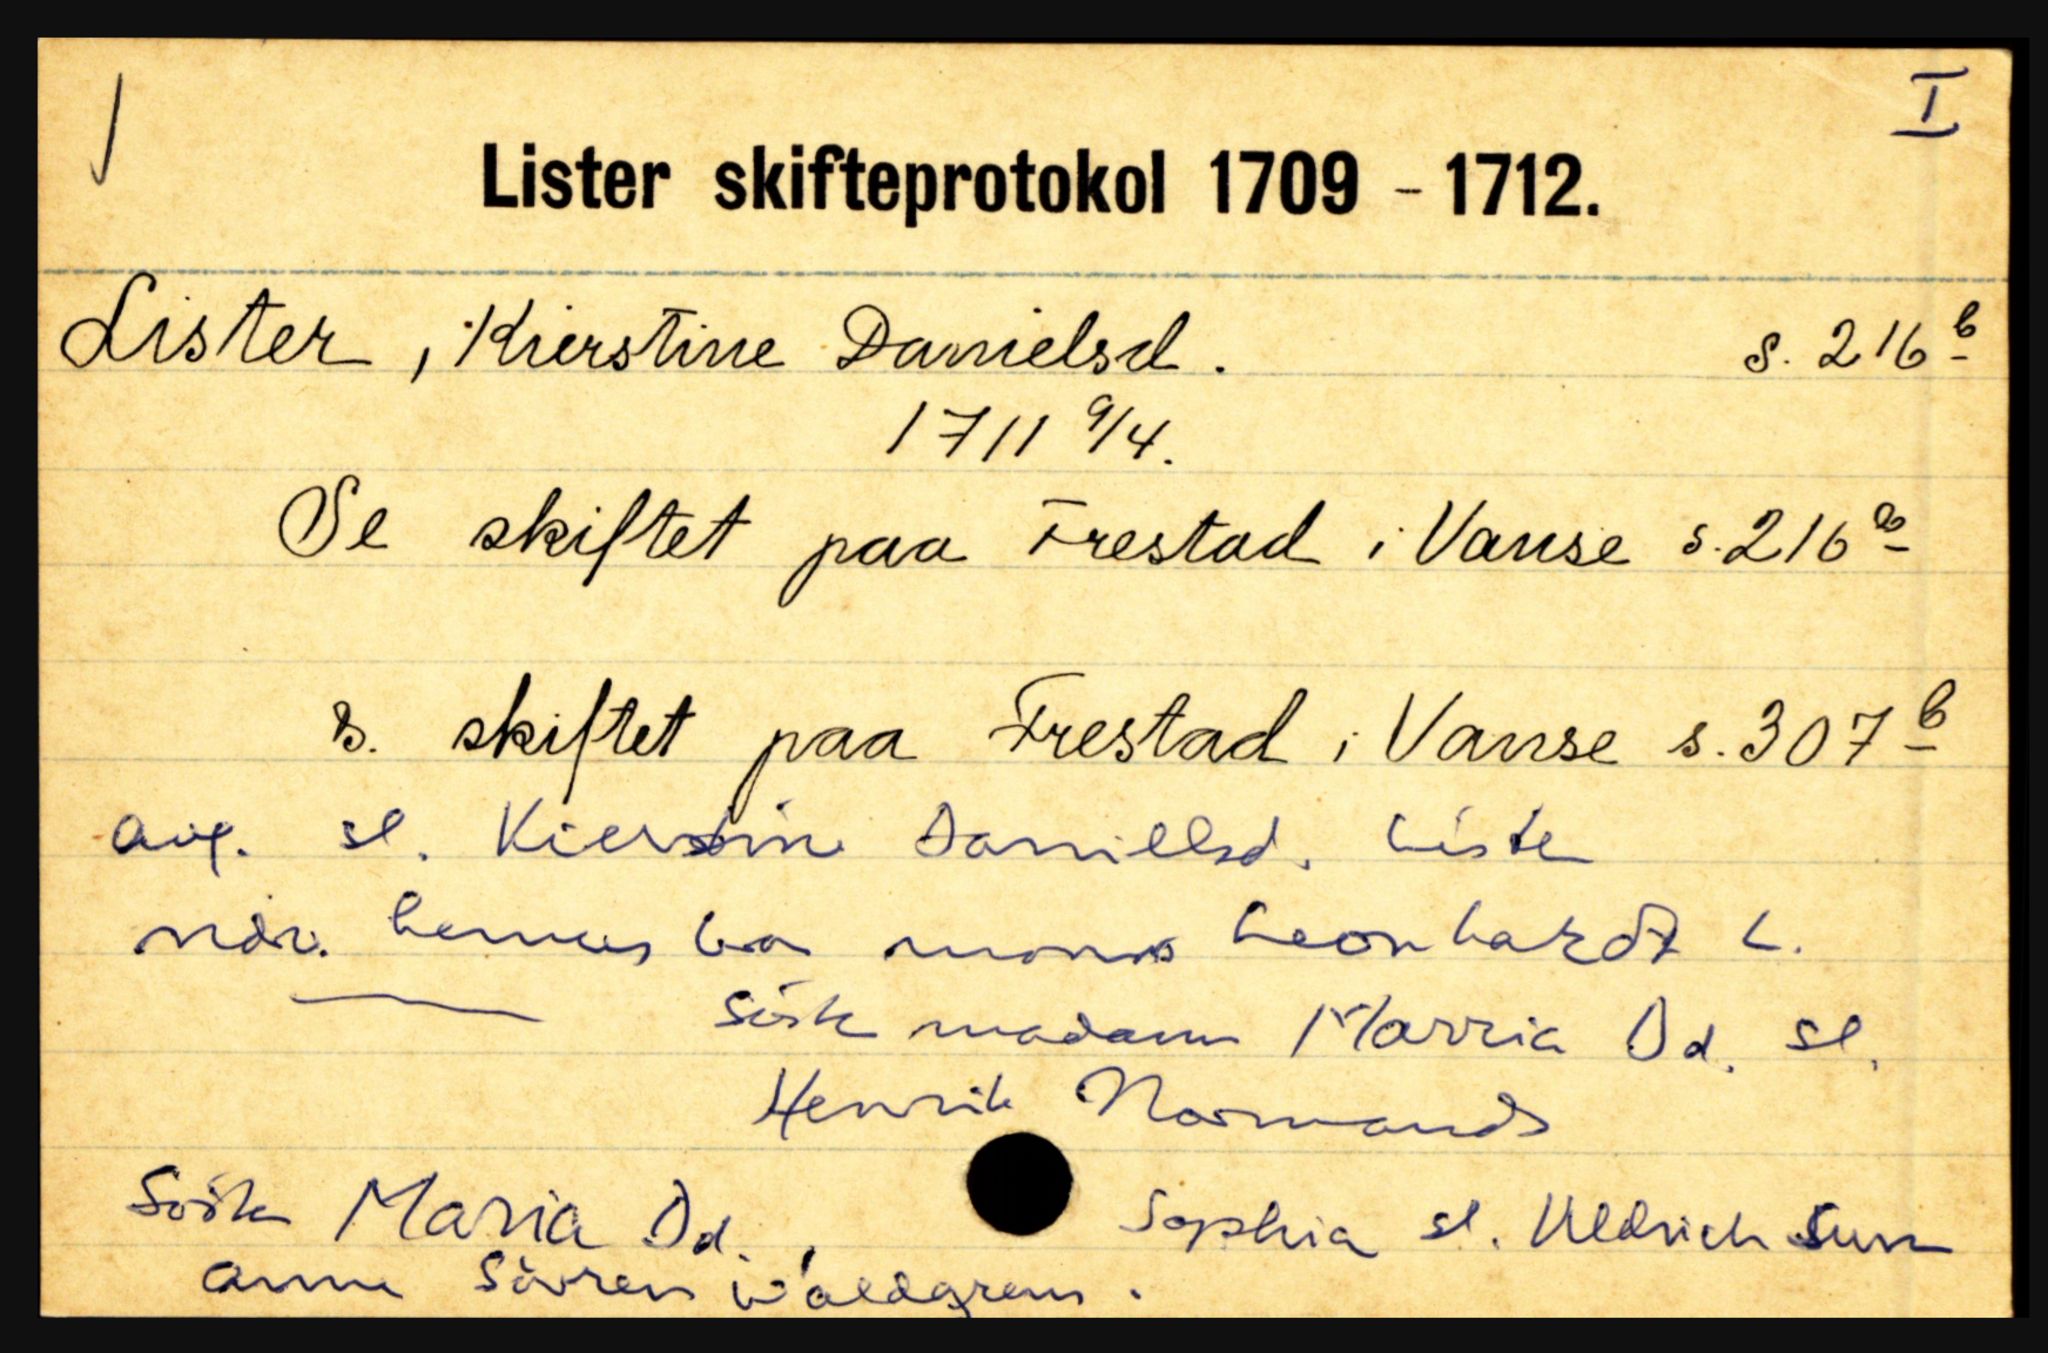 I
Lister skifteprotokol 1709 - 1712.
Lister, Kierstine Danielsd. s. 216 b
1711 9/4.
Se skiftet paa Frestad i Vanse s. 216 a
s. skiftet paa Frestad i Vanse s. 307 b
sl. Kierstine Daniellsd. Lister
Leonhardt L.
Søsk madam Marria Dd. sl.
Henrik Normands
Søsk Maria Dd., Sophia sl. Uldrich Sun
Anne Søvren Waldgrens.